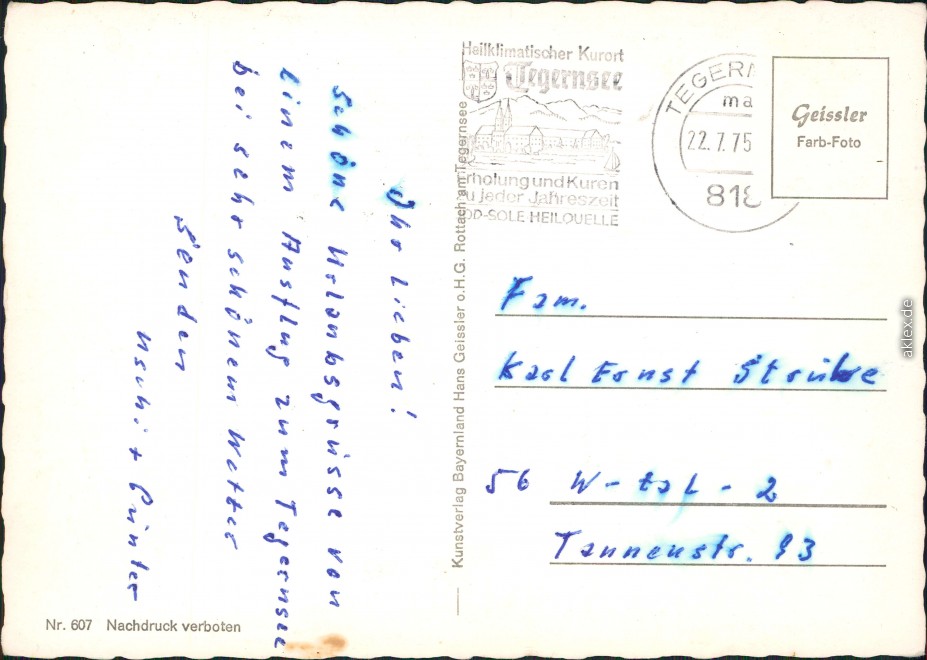 Ihr Lieben!
Schöne Urlaubsgrüsse von
einem Ausflug zum Tegernsee
bei sehr schönem Wetter
Senden
+ Günter
Heilklimatischer Kurort
Tegernsee
rholung und Kuren
u jeder Jahreszeit
OD-SOLE HEILQUELLE
TEGERN
ma
22.7.75
818
Geissler
Farb-Foto
Kunstverlag Bayernland Hans Geissler o.H.G. Rottach am Tegernsee
Fam.
Karl Ernst
56 W-tal-2
Tannenstr. 93
Nr. 607 Nachdruck verboten
aklex.de